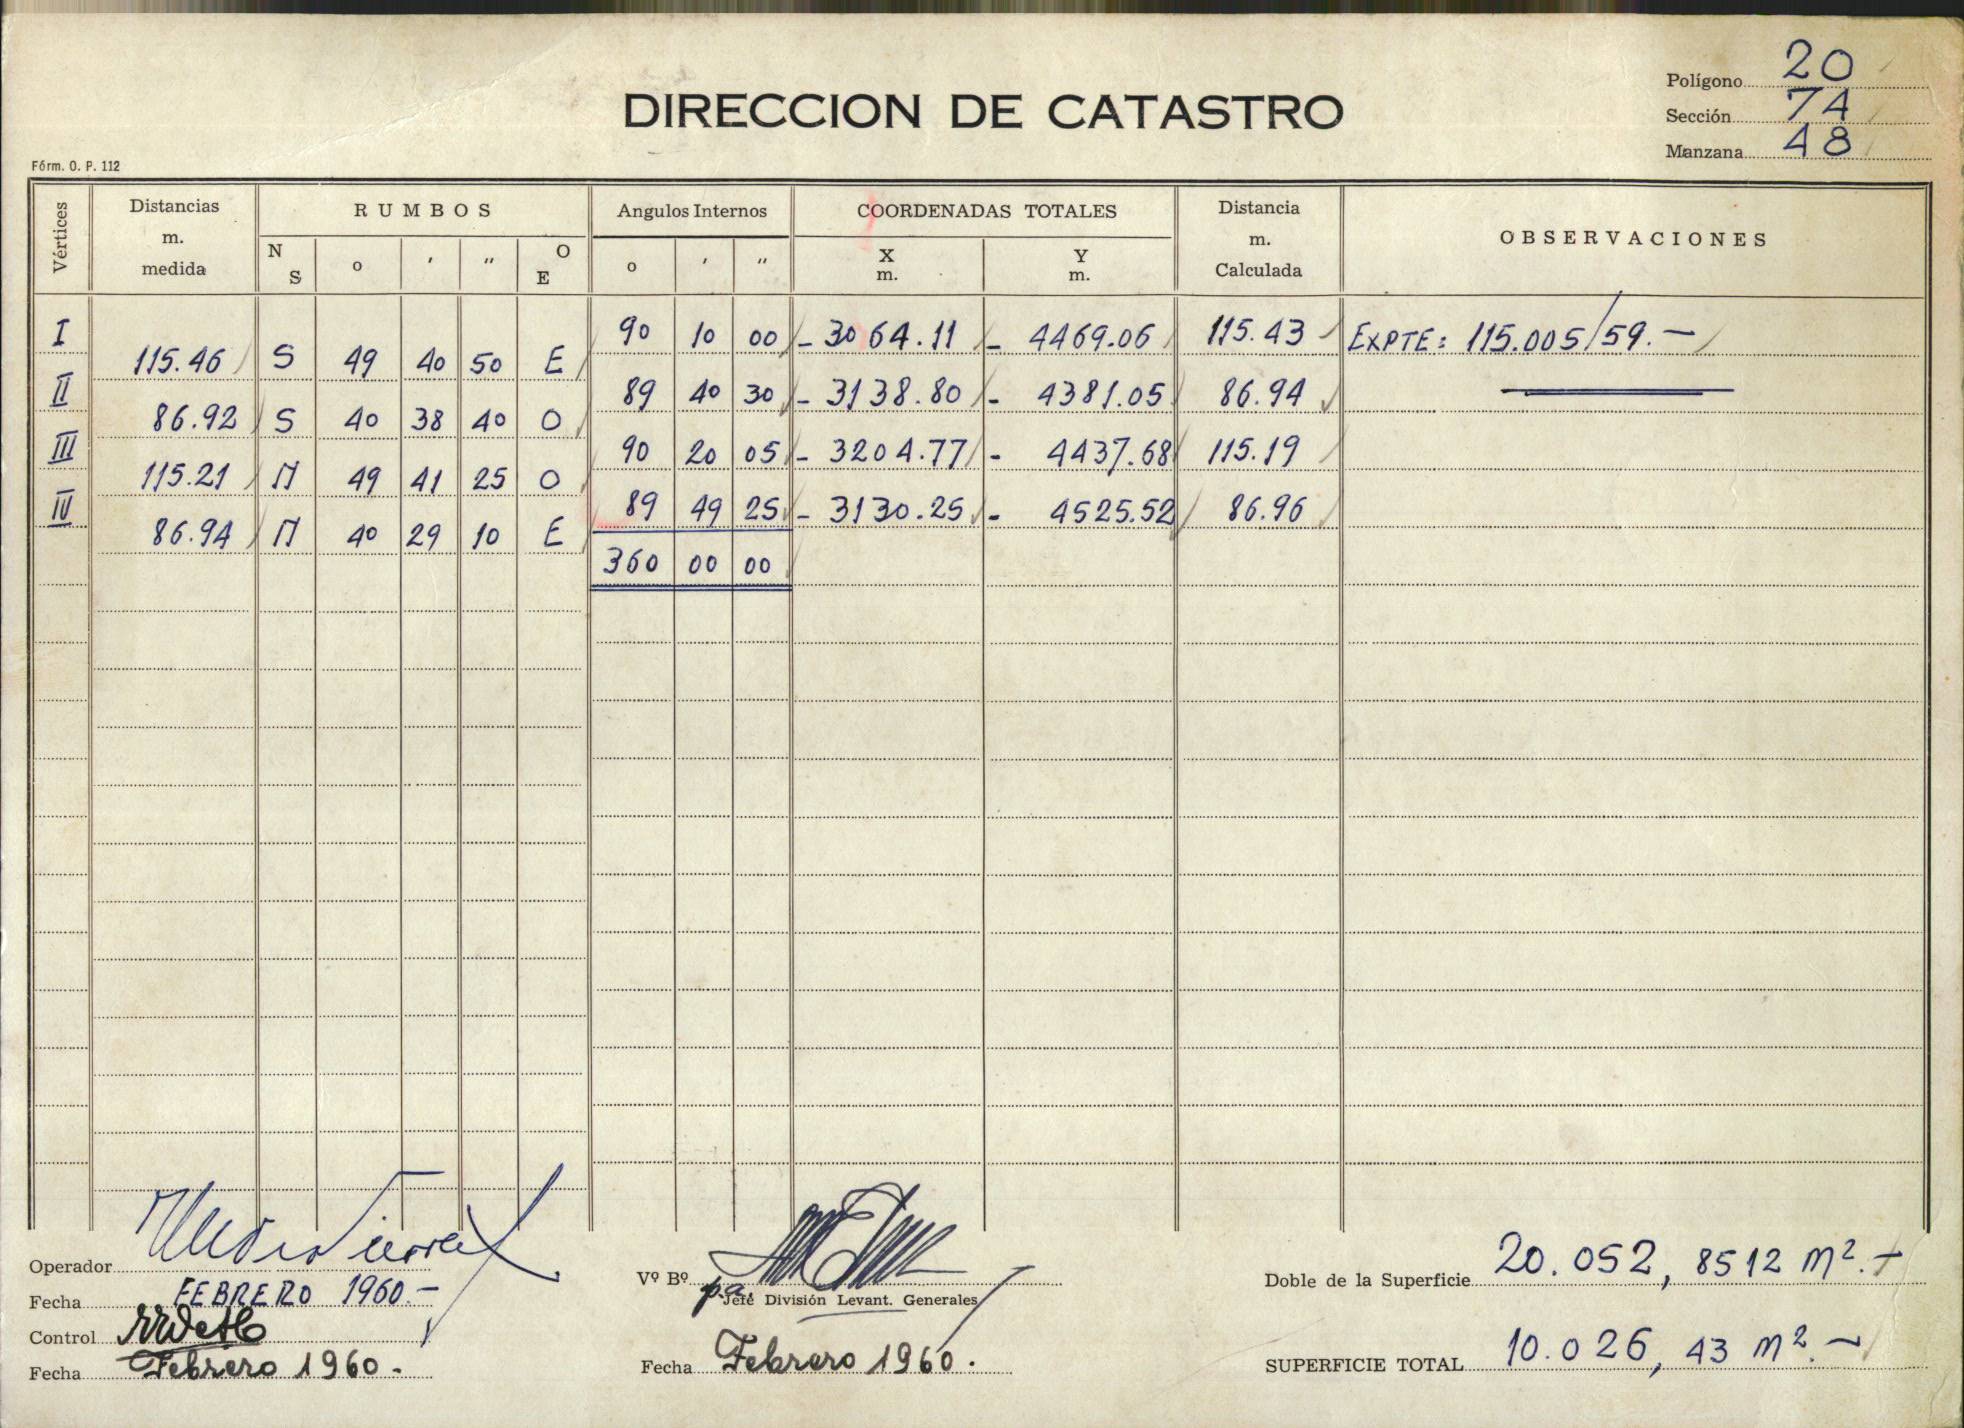 Polígono 20
DIRECCION DE CATASTRO
Sección 74
Manzana 48
Fórm. O. P. 112
Vértices Distancias m. medida RUMBOS Angulos Internos COORDENADAS TOTALES Distancia m. Calculada OBSERVACIONES
N S o ′ ″ O E o ′ ″ X m. Y m.
I 90 10 00 - 3064.11 - 4469.06 115.43 EXPTE: 115.005/59.-
115.46 S 49 40 50 E
II 89 40 30 - 3138.80 - 4381.05 86.94
86.92 S 40 38 40 O
III 90 20 05 - 3204.77 - 4437.68 115.19
115.21 N 49 41 25 O
IV 89 49 25 - 3130.25 - 4525.52 86.96
86.94 N 40 29 10 E
360 00 00
Operador
Fecha FEBRERO 1960.-
Control
Fecha Febrero 1960.-
Vº Bº
p.a. Jefe División Levant. Generales
Fecha Febrero 1960.
Doble de la Superficie 20.052, 8512 m².-
SUPERFICIE TOTAL 10.026, 43 m².-